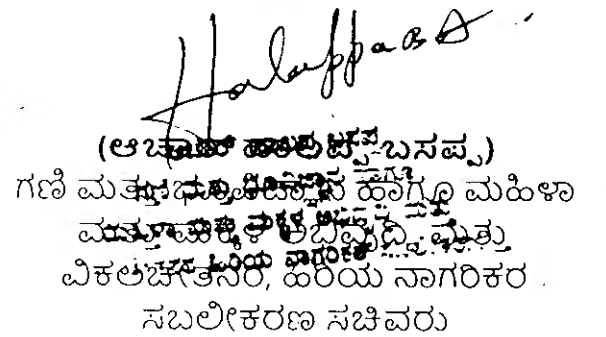 Halappa B A
(ಆಚಾರ್ ಹಾಲಪ್ಪ ಬಸಪ್ಪ)
ಗಣಿ ಮತ್ತು ಭೂವಿಜ್ಞಾನ ಹಾಗೂ ಮಹಿಳಾ
ಮತ್ತು ಮಕ್ಕಳ ಅಭಿವೃದ್ಧಿ ಮತ್ತು
ವಿಕಲಚೇತನರ, ಹಿರಿಯ ನಾಗರಿಕರ
ಸಬಲೀಕರಣ ಸಚಿವರು